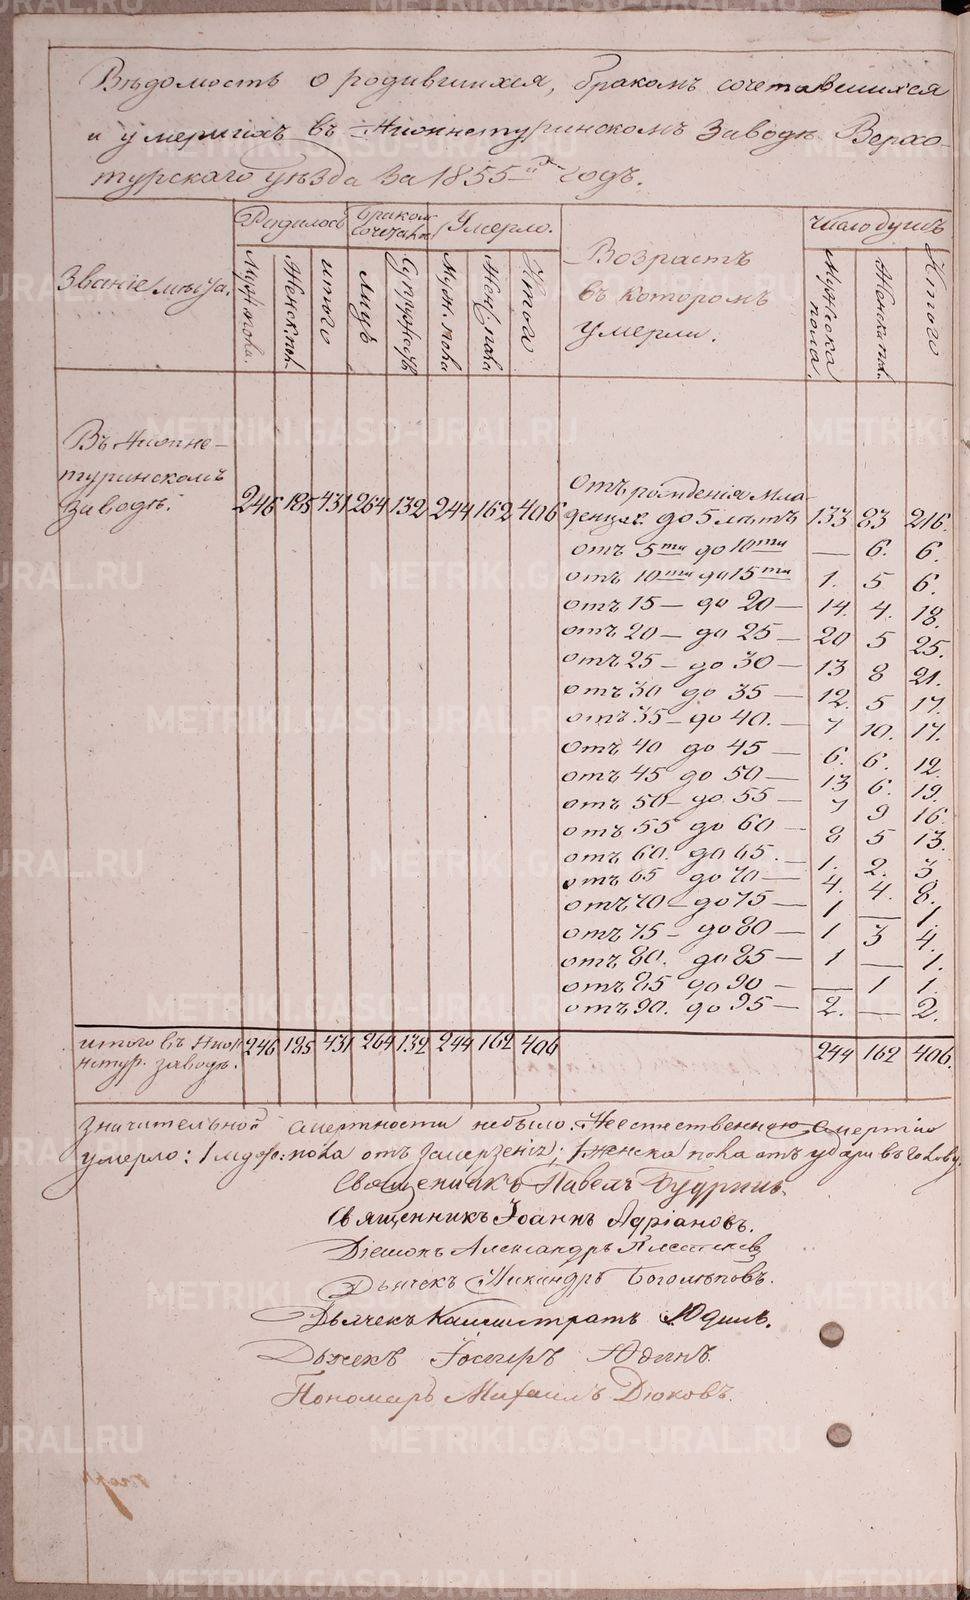 Вѣдомость о родившихся, бракомъ сочетавшихся
и умершихъ въ Нижнетуринскомъ Заводѣ Верхо-
турскаго Уѣзда за 1855-й годъ.
Званіе мѣста.
Родилось
Мужск. пола.
Женск. пол.
итого
Браком сочетались
лицъ
Супружествъ
Умерло.
Муж. пола
Жен. пола
Итого
Возрастъ
въ которомъ
умерли.
Число душъ
Мужска пола.
Женска пол.
Итого
Въ Нижне-
туринскомъ
Заводѣ. 246 185 431 264 132 244 162 406
отъ рожденія Мла-
денцев. до 5 лѣтъ 133 83 216.
отъ 5ти до 10ти — 6. 6.
отъ 10ти до 15ти 1. 5 6.
отъ 15 — до 20 — 14. 4. 18.
отъ 20 — до 25 — 20 5 25.
отъ 25 — до 30 — 13 8 21.
отъ 30 до 35 — 12. 5 17.
отъ 35 — до 40. — 7 10. 17.
отъ 40 до 45 — 6. 6. 12.
отъ 45 до 50 — 13 6. 19.
отъ 50 — до 55 — 7 9 16.
отъ 55 до 60 — 8 5 13.
отъ 60. до 65. — 1. 2. 3
отъ 65 до 70 — 4. 4. 8.
отъ 70 — до 75 — 1 — 1.
отъ 75 — до 80 — 1 3 4.
отъ 80. до 85 — 1 — 1.
отъ 85 до 90 — — 1 1.
отъ 90. до 95 — 2. — 2.
итого въ Ниж-
нетур. заводѣ. 246 185 431 264 132 244 162 406 244 162 406.
Значительной смертности небыло: Неестественною смертію
умерло: 1 муж: пола отъ замерзенія; 1 женска пола отъ удара въ голову.
Священникъ Павелъ
Священникъ Іоаннъ Адріановъ.
Діаконъ Александръ
Дьячекъ Никандръ Боголѣповъ.
Дьячекъ Каллистратъ Юдинъ.
Дьячекъ Юдинъ.
Пономарь Михаилъ Дюковъ.
METRIKI.GASO-URAL.RU